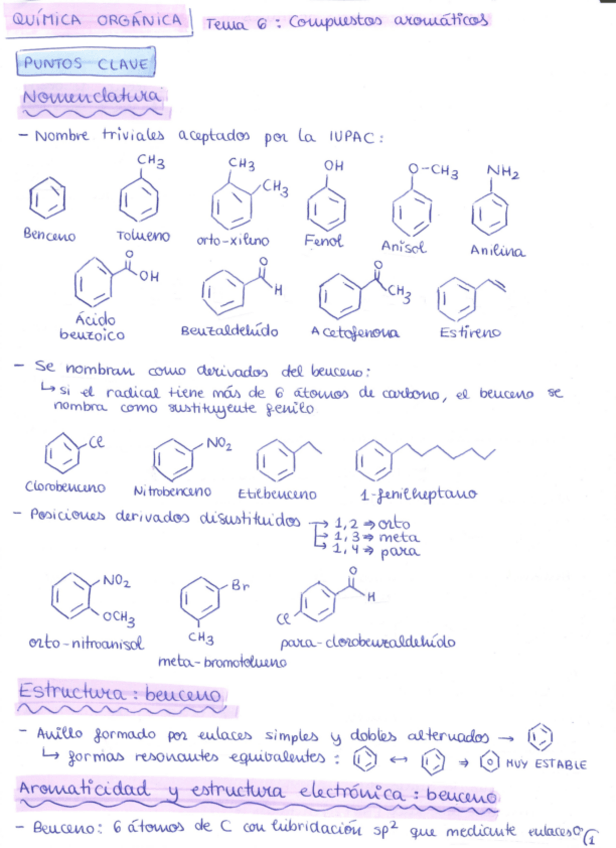 QUÍMICA ORGÁNICA Tema 6: Compuestos aromáticos
PUNTOS CLAVE
Nomenclatura
- Nombre triviales aceptados por la IUPAC:
CH3 CH3 CH3 OH O-CH3 NH2
Benceno Tolueno orto-xileno Fenol Anisol Anilina
O OH O H O CH3
Ácido benzoico Benzaldehído Acetofenona Estireno
- Se nombran como derivados del benceno:
↳ si el radical tiene más de 6 átomos de carbono, el benceno se
nombra como sustituyente fenilo
Cl NO2
Clorobenceno Nitrobenceno Etilbenceno 1-fenilheptano
- Posiciones derivados disustituidos → 1,2 ⇒ orto
→ 1,3 ⇒ meta
→ 1,4 ⇒ para
NO2 OCH3 Br CH3 Cl O H
orto-nitroanisol meta-bromotolueno para-clorobenzaldehído
Estructura: benceno
- Anillo formado por enlaces simples y dobles alternados →
↳ formas resonantes equivalentes: ↔ ⇒ MUY ESTABLE
Aromaticidad y estructura electrónica: benceno
- Benceno: 6 átomos de C con hibridación sp2 que mediante enlaces σ